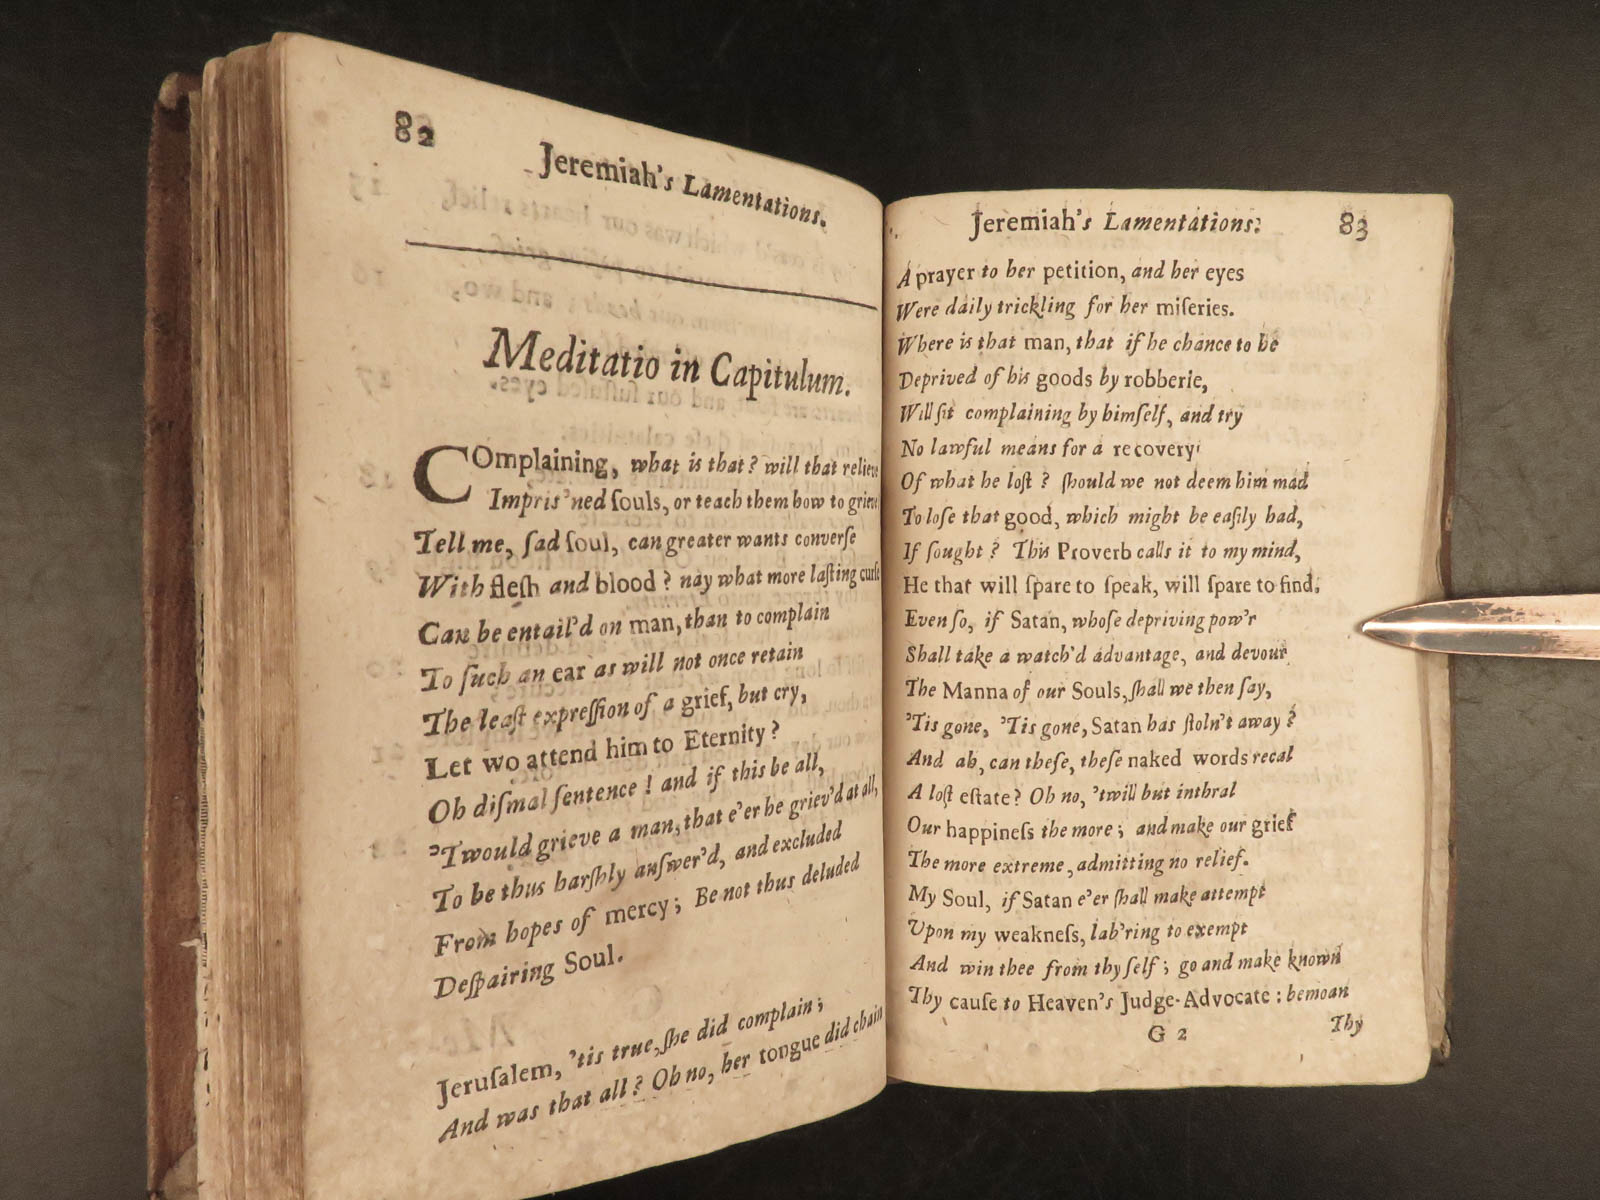 82
Jeremiah's Lamentations.
Meditatio in Capitulum.
COmplaining, what is that? will that relieve
Impris'ned ſouls, or teach them how to grieve
Tell me, ſad ſoul, can greater wants converſe
With fleſh and blood? nay what more laſting curſe
Can be entail'd on man, than to complain
To ſuch an ear as will not once retain
The leaſt expreſſion of a grief, but cry,
Let wo attend him to Eternity?
Oh diſmal ſentence! and if this be all,
'Twould grieve a man, that e'er he griev'd at all,
To be thus harſhly anſwer'd, and excluded
From hopes of mercy; Be not thus deluded
Deſpairing Soul.
Jeruſalem, 'tis true, ſhe did complain;
And was that all? Oh no, her tongue did chain
Jeremiah's Lamentations.
83
A prayer to her petition, and her eyes
Were daily trickling for her miſeries.
Where is that man, that if he chance to be
Deprived of his goods by robberie,
Will ſit complaining by himſelf, and try
No lawful means for a recovery
Of what he loſt? ſhould we not deem him mad
To loſe that good, which might be eaſily had,
If ſought? This Proverb calls it to my mind,
He that will ſpare to ſpeak, will ſpare to find.
Even ſo, if Satan, whoſe depriving pow'r
Shall take a watch'd advantage, and devour
The Manna of our Souls, ſhall we then ſay,
'Tis gone, 'Tis gone, Satan has ſtoln't away?
And ah, can theſe, theſe naked words recal
A loſt eſtate? Oh no, 'twill but inthral
Our happineſs the more; and make our grief
The more extreme, admitting no relief.
My Soul, if Satan e'er ſhall make attempt
Upon my weakneſs, lab'ring to exempt
And win thee from thy ſelf; go and make known
Thy cauſe to Heaven's Judge-Advocate: bemoan
G 2
Thy